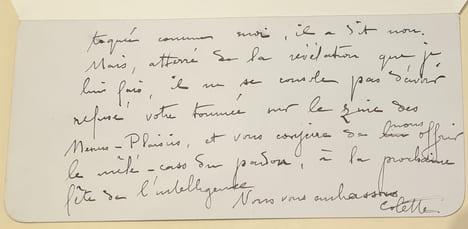 toqué comme moi, il a dit non.
Mais, atterré de la révélation que je
lui fais, il ne se console pas d'avoir
refusé votre tournée sur le zinc des
Menus-Plaisirs, et vous conjure de nous offrir
le mêlé-cass du pardon, à la prochaine
fête de l'intelligence
Nous vous embrassons
Colette.